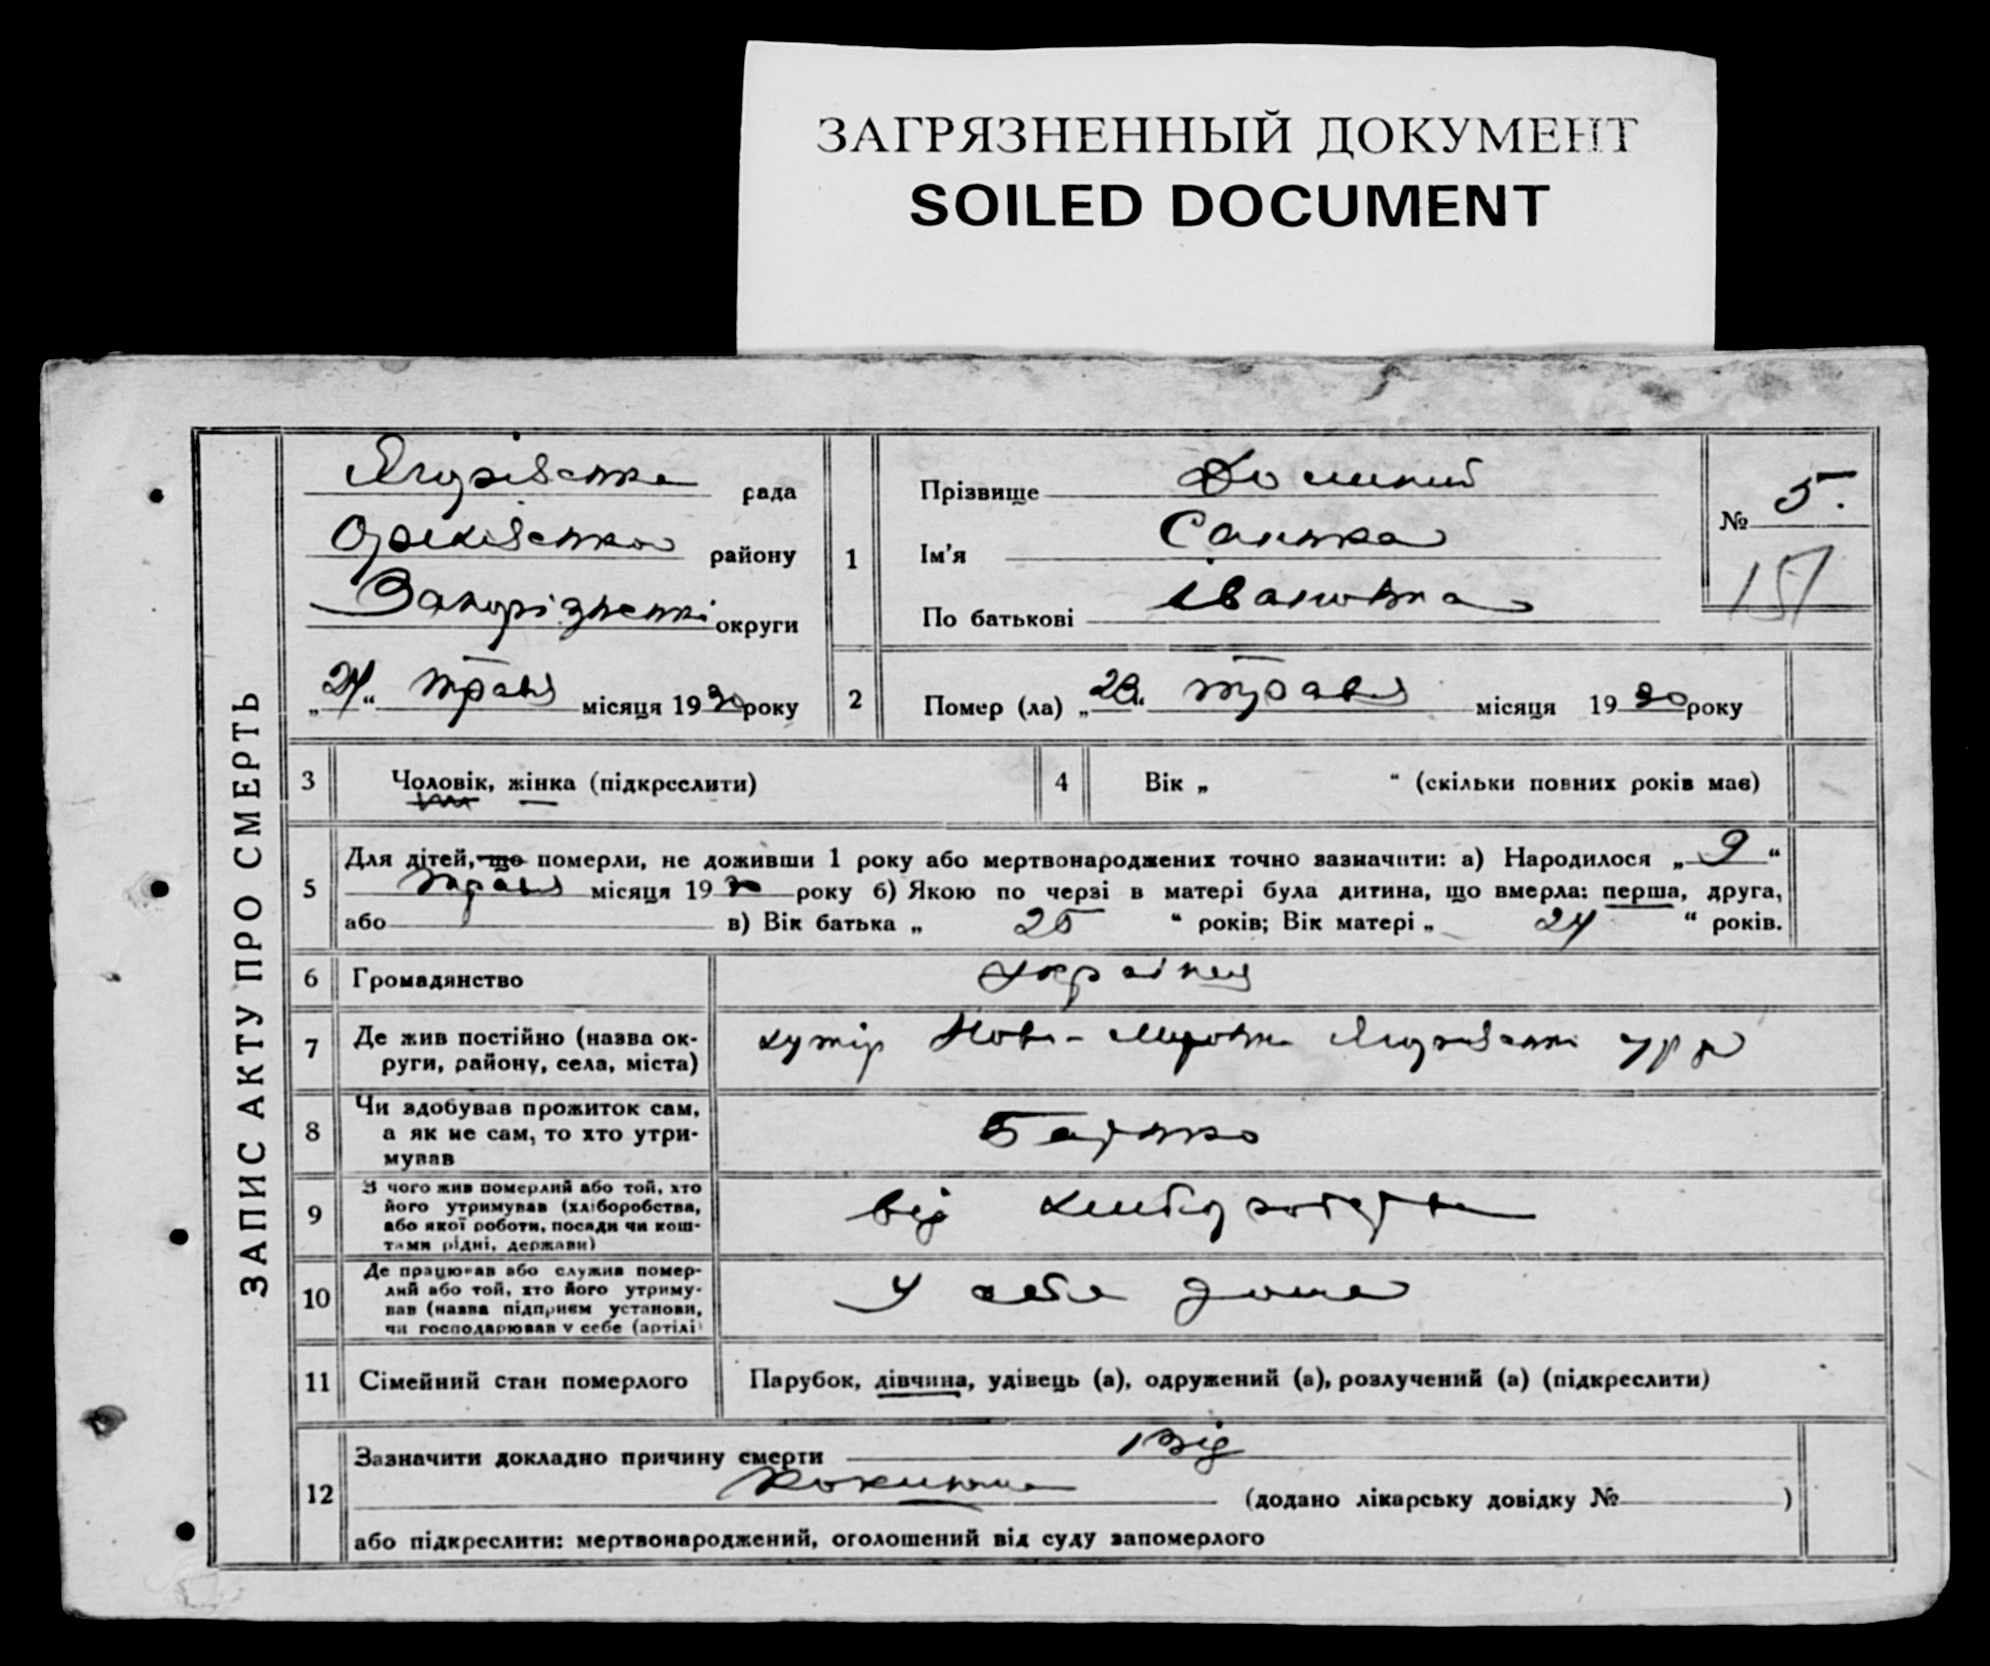 ЗАГРЯЗНЕННЫЙ ДОКУМЕНТ
SOILED DOCUMENT
ЗАПИС АКТУ ПРО СМЕРТЬ
рада
району
округи
„24“ травня місяця 1930 року
1
Прізвище
Ім'я Санька
По батькові Івановна
№ 5.
151
2
Помер (ла) „23“ травня місяця 1930 року
3
Чоловік, жінка (підкреслити)
4
Вік „ “ (скільки повних років має)
5
Для дітей, що померли, не доживши 1 року або мертвонароджених точно зазначити: а) Народилося „9“
травня місяця 1930 року б) Якою по черзі в матері була дитина, що вмерла: перша, друга,
або в) Вік батька „ 25 “ років; Вік матері „ 24 “ років.
6
Громадянство
Українец
7
Де жив постійно (назва ок-
руги, району, села, міста)
хутір Ново-
8
Чи здобував прожиток сам,
а як не сам, то хто утри-
мував
Батько
9
З чого жив померлий або той, хто
його утримував (хліборобства,
або якої роботи, посади чи кош-
тами рідні, держави)
від
10
Де працював або служив помер-
лий або той, хто його утриму-
вав (назва підприєм установи,
чи господарював у себе (артілі)
У себе дома
11
Сімейний стан померлого
Парубок, дівчина, удівець (а), одружений (а), розлучений (а) (підкреслити)
12
Зазначити докладно причину смерти Від
(додано лікарську довідку № )
або підкреслити: мертвонароджений, оголошений від суду запомерлого